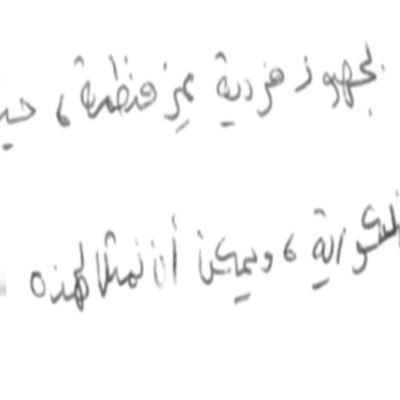 لجهود فردية غير منظمة، حيث
العشوائية، ويمكن أن نمثل لهذه